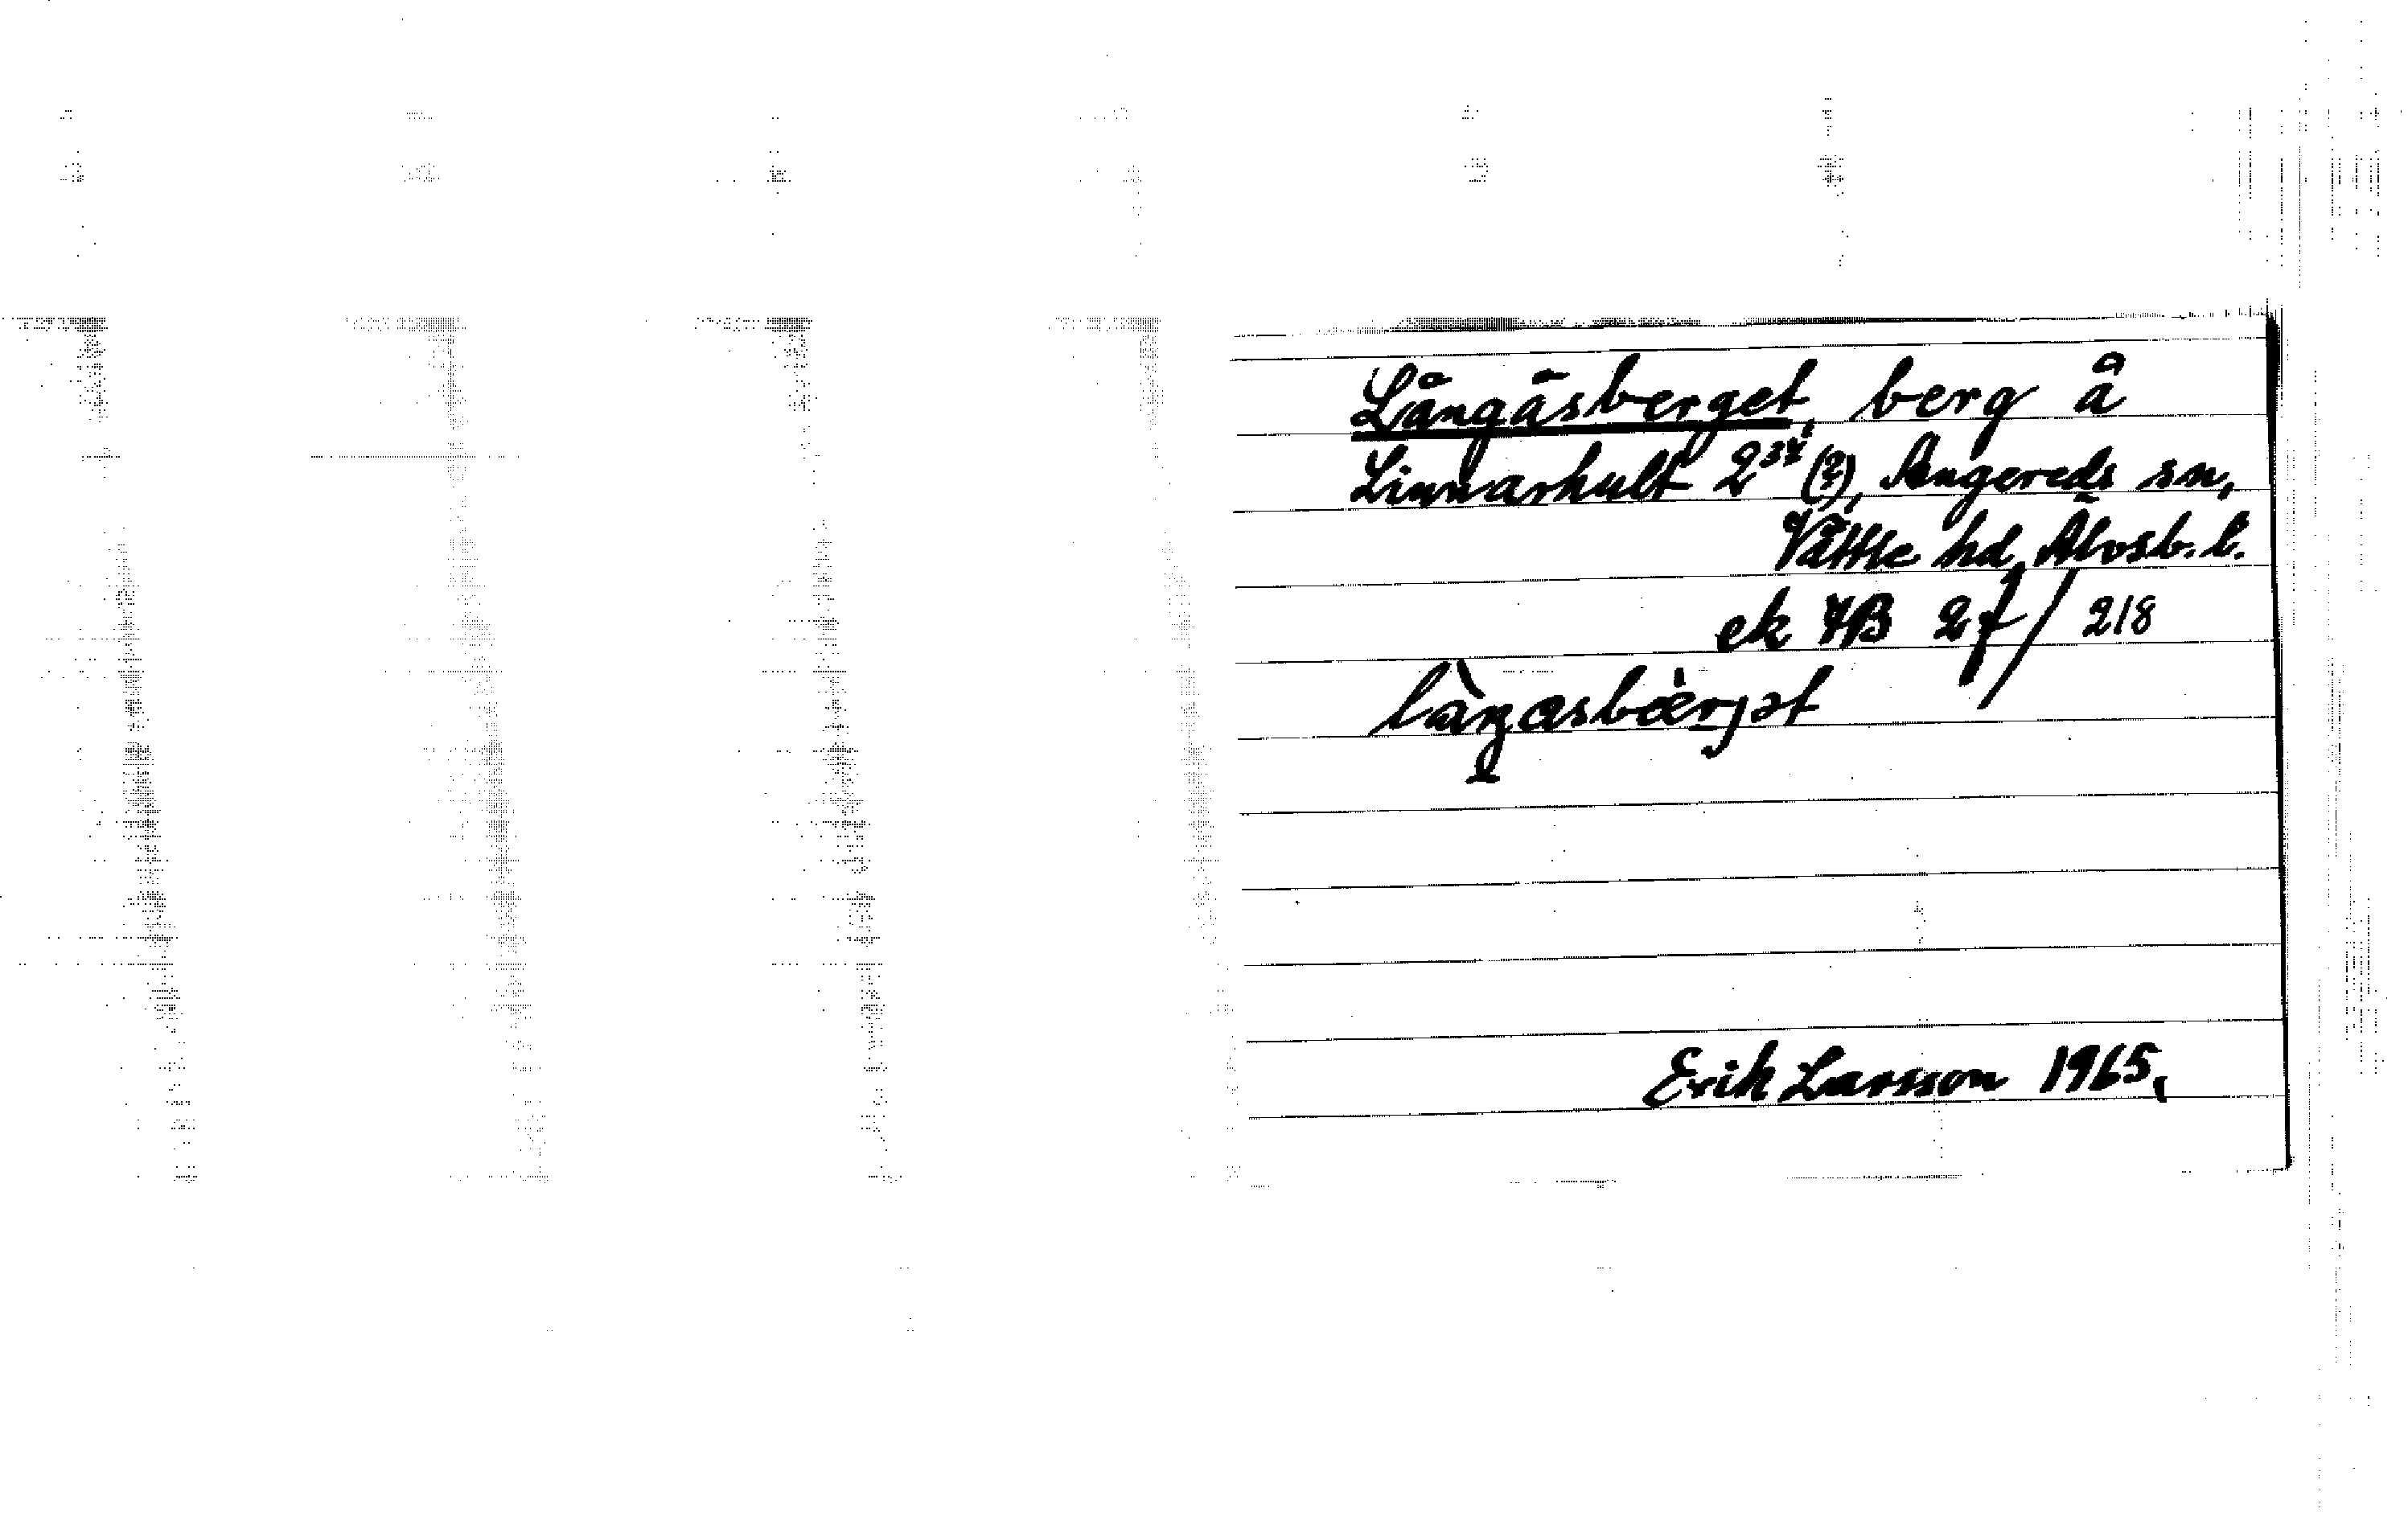 Långåsberget, berg å
Linnarhult 2³⁴ (?), Angereds sn,
Vättle hd, Älvsb. l.
ek 7B 2f / 218
Erik Larsson 1965.